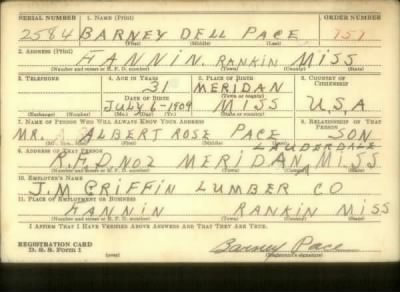 SERIAL NUMBER 1. NAME (Print) ORDER NUMBER
2584 BARNEY DELL PACE 757
(First) (Middle) (Last)
2. ADDRESS (Print)
FANNIN, RANKIN MISS
(Number and street or R. F. D. number) (Town) (County) (State)
3. TELEPHONE 4. AGE IN YEARS 5. PLACE OF BIRTH 6. COUNTRY OF CITIZENSHIP
31 MERIDAN
DATE OF BIRTH (Town or county)
JULY 6-1909 MISS U.S.A
(Exchange) (Number) (Mo.) (Day) (Yr.) (State or country)
7. NAME OF PERSON WHO WILL ALWAYS KNOW YOUR ADDRESS 8. RELATIONSHIP OF THAT PERSON
MR. ALBERT ROSE PACE SON
(Mr., Mrs., Miss) (First) (Middle) (Last)
9. ADDRESS OF THAT PERSON LAUDERDALE
R.F.D. NO2 MERIDAN, MISS
(Number and street or R. F. D. number) (Town) (County) (State)
10. EMPLOYER'S NAME
J.M GRIFFIN LUMBER CO
11. PLACE OF EMPLOYMENT OR BUSINESS
FANNIN RANKIN MISS
(Number and street or R. F. D. number) (Town) (County) (State)
I AFFIRM THAT I HAVE VERIFIED ABOVE ANSWERS AND THAT THEY ARE TRUE.
REGISTRATION CARD
D. S. S. Form 1 (over) Barney Pace
(Registrant's signature)